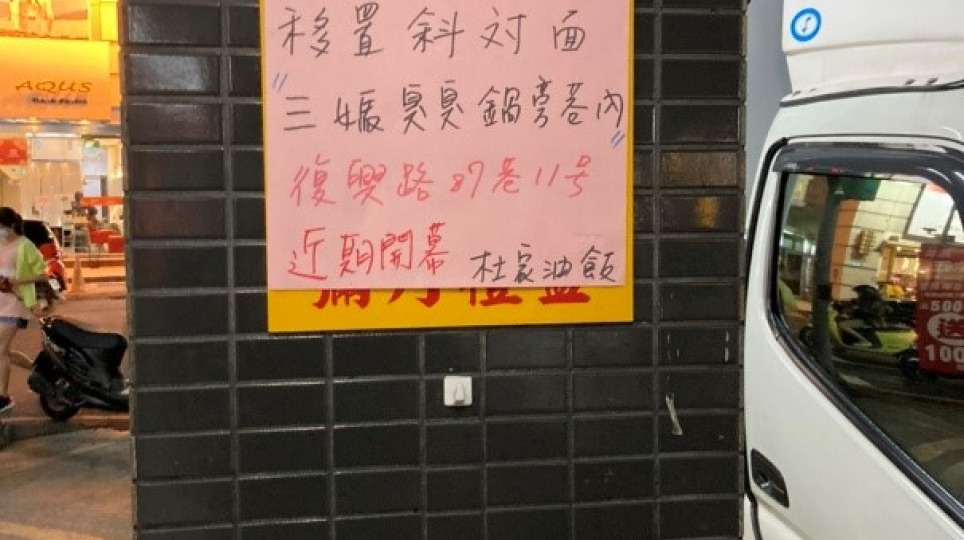 AQUS
移置斜对面
"三媽臭臭鍋旁巷內"
復興路87巷11号
近期開幕 杜家油飯
滿月禮盒
500
送
100